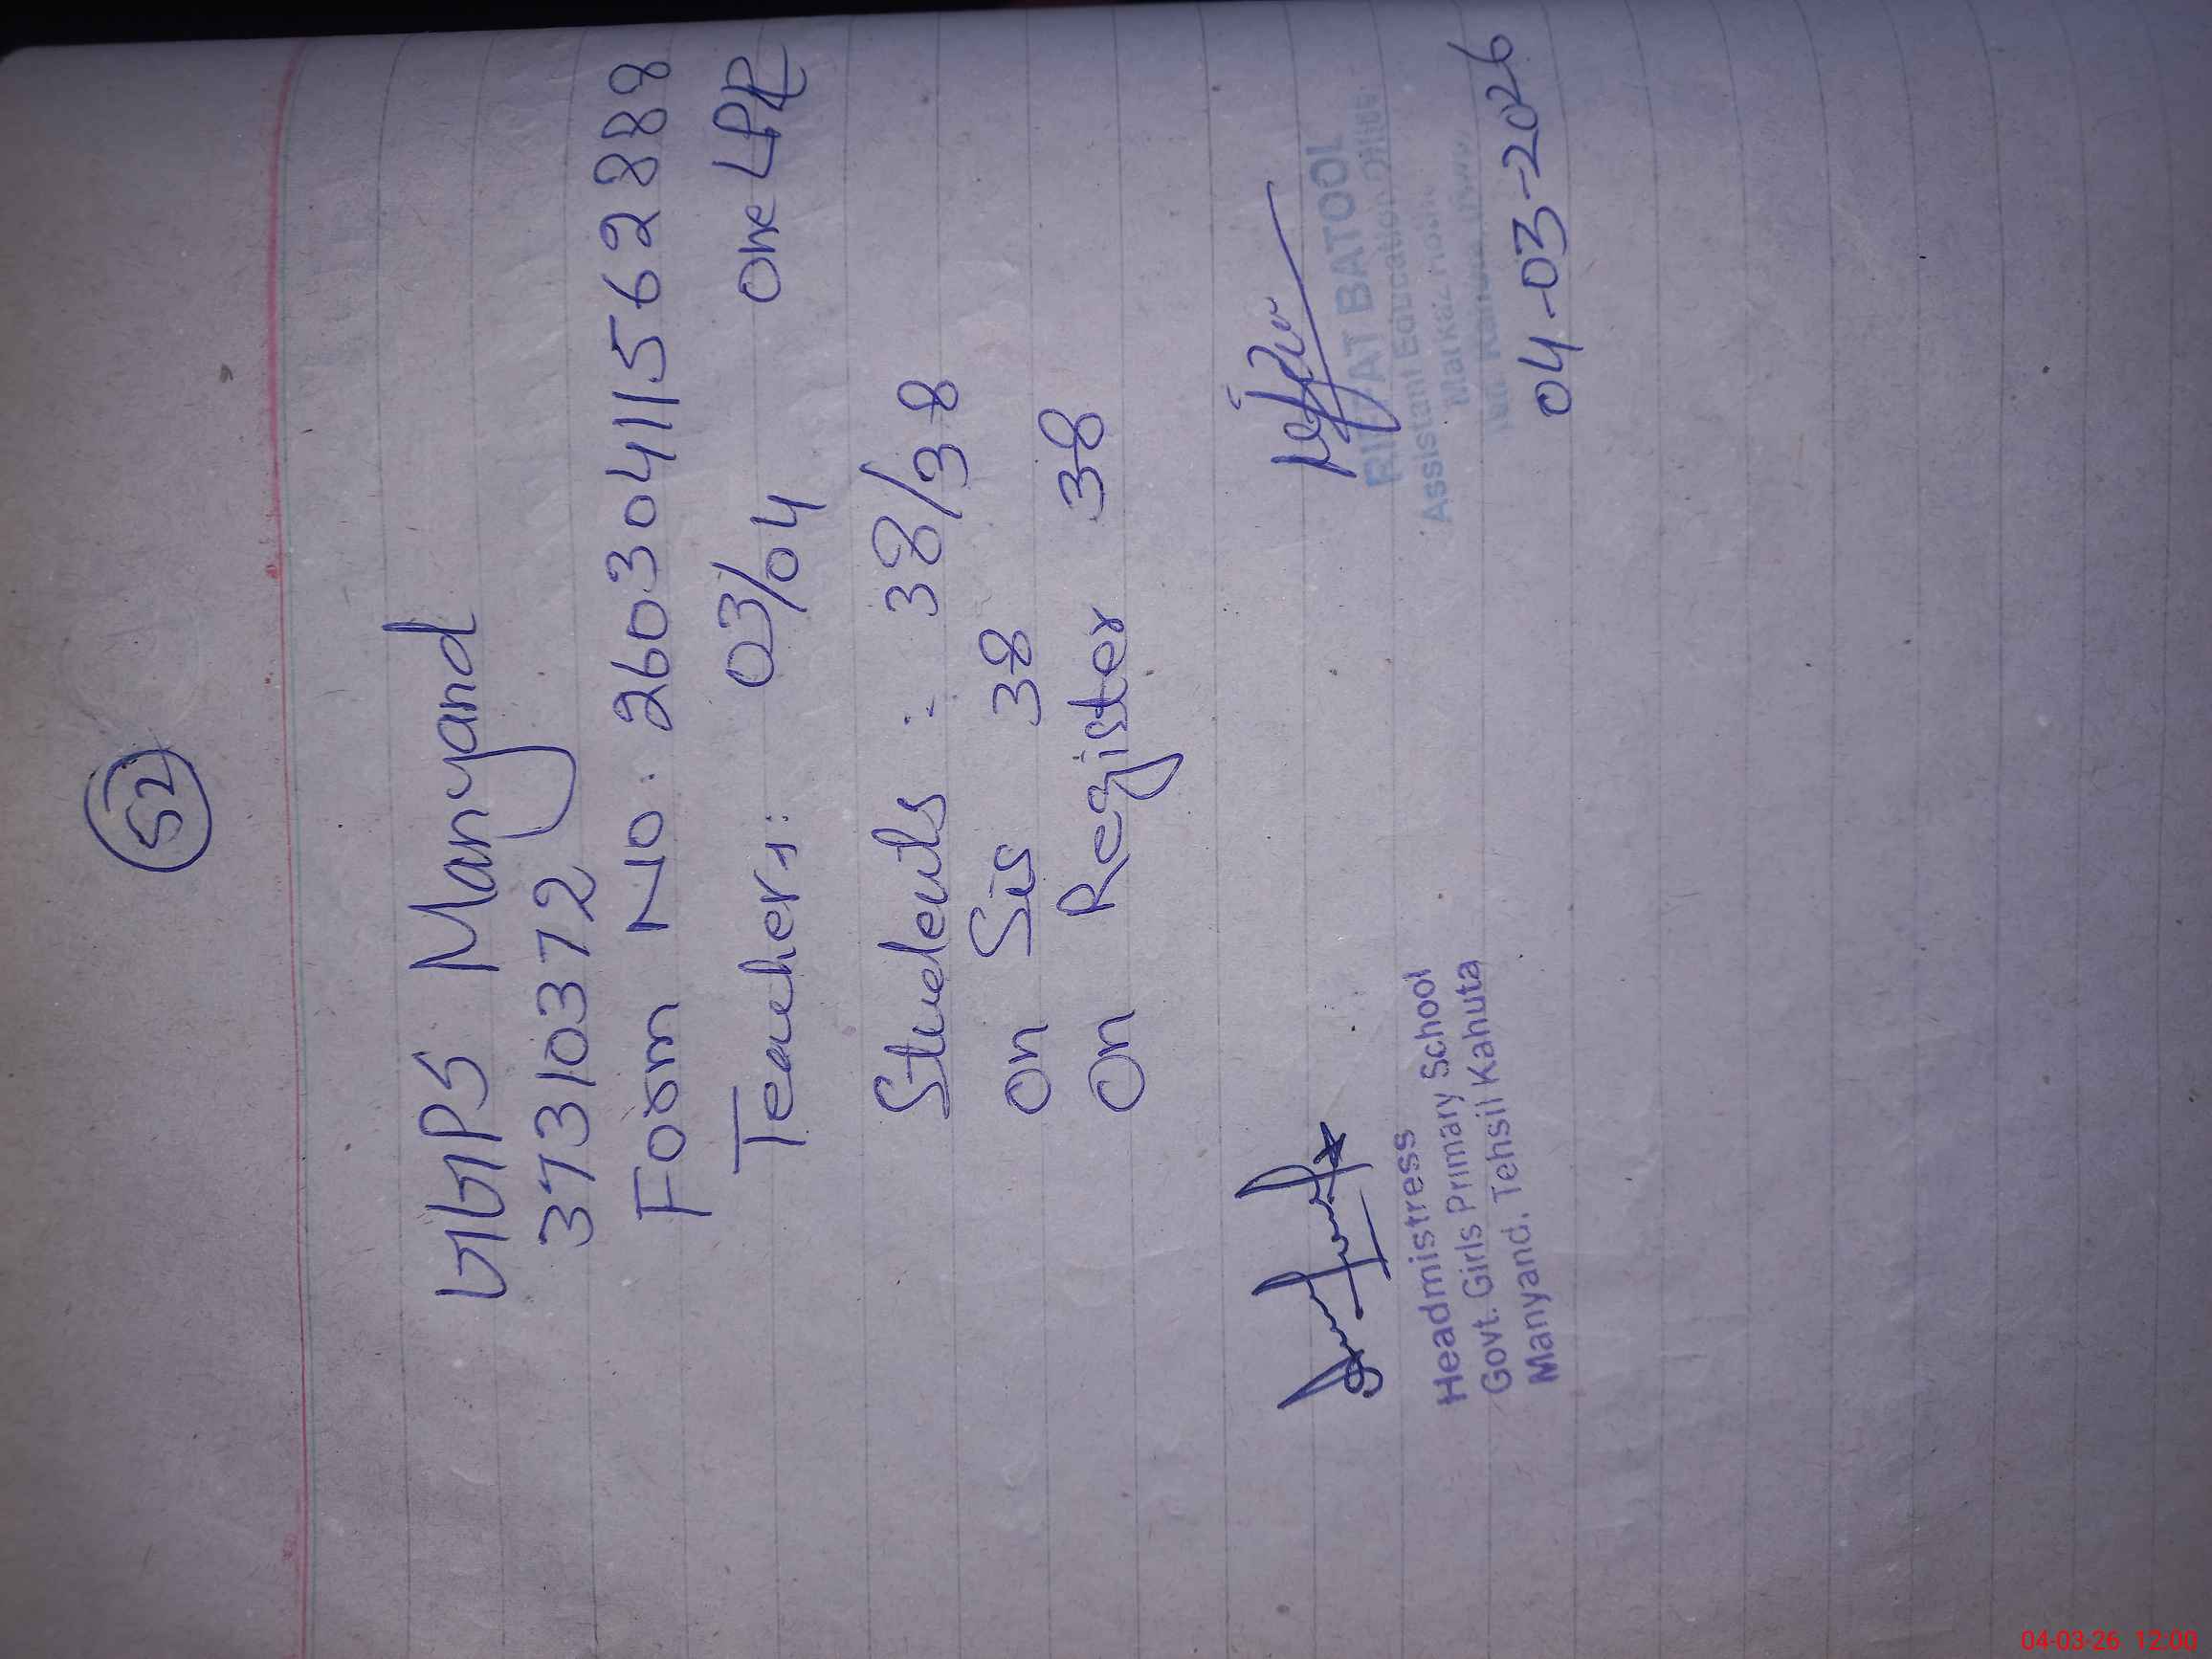 52
GGPS Manyand
37310372
Form No. 26030411562888
Teachers: 03/04 One LPR
Students: 38/38
On Sis 38
On Register 38
Headmistress
Govt. Girls Primary School
Manyand. Tehsil Kahuta
RIFFAT BATOOL
Assistant Education Officer
Markaz
04-03-2026
04-03-26 12:00